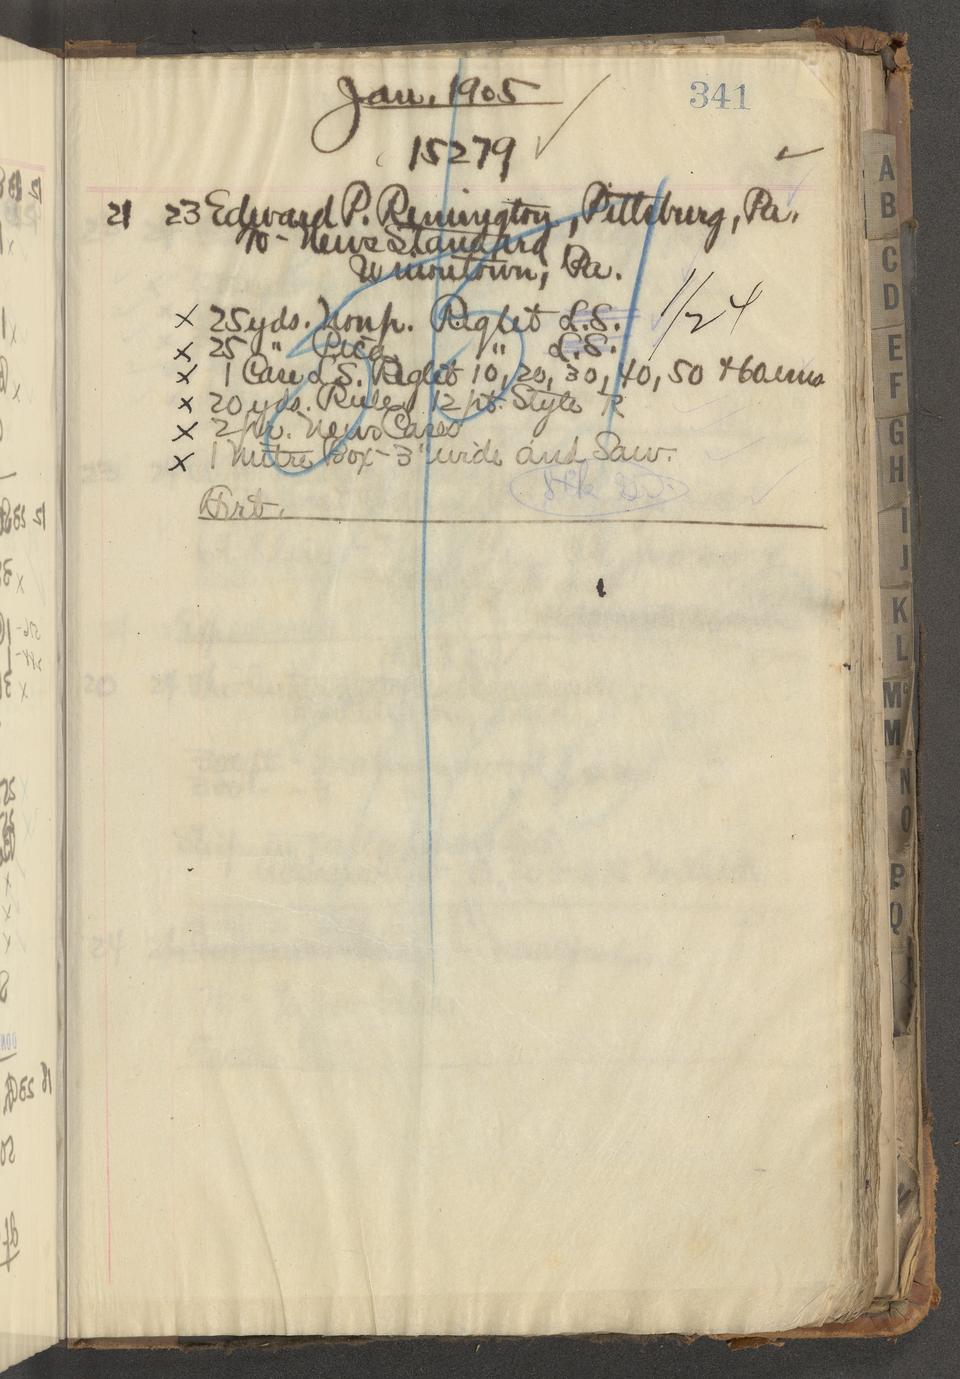 341
Jan. 1905
15279
21 23 Edward P. Remington, Pittsburg, Pa.
To - News Standard
Uniontown, Pa.
x 25 yds. Nonp. Reglet L.S. 1/24
x 25 " Pica " L.S.
x 1 Case L.S. Reglet 10, 20, 30, 40, 50 & 60 ems
x 20 yds. Rule, 12 pt. Style
x 2 pr. News Cases
x 1 Mitre Box - 3" wide and Saw.
Frt.
A
B
C
D
E
F
G
H
I
J
K
L
Mc
M
N
O
P
Q